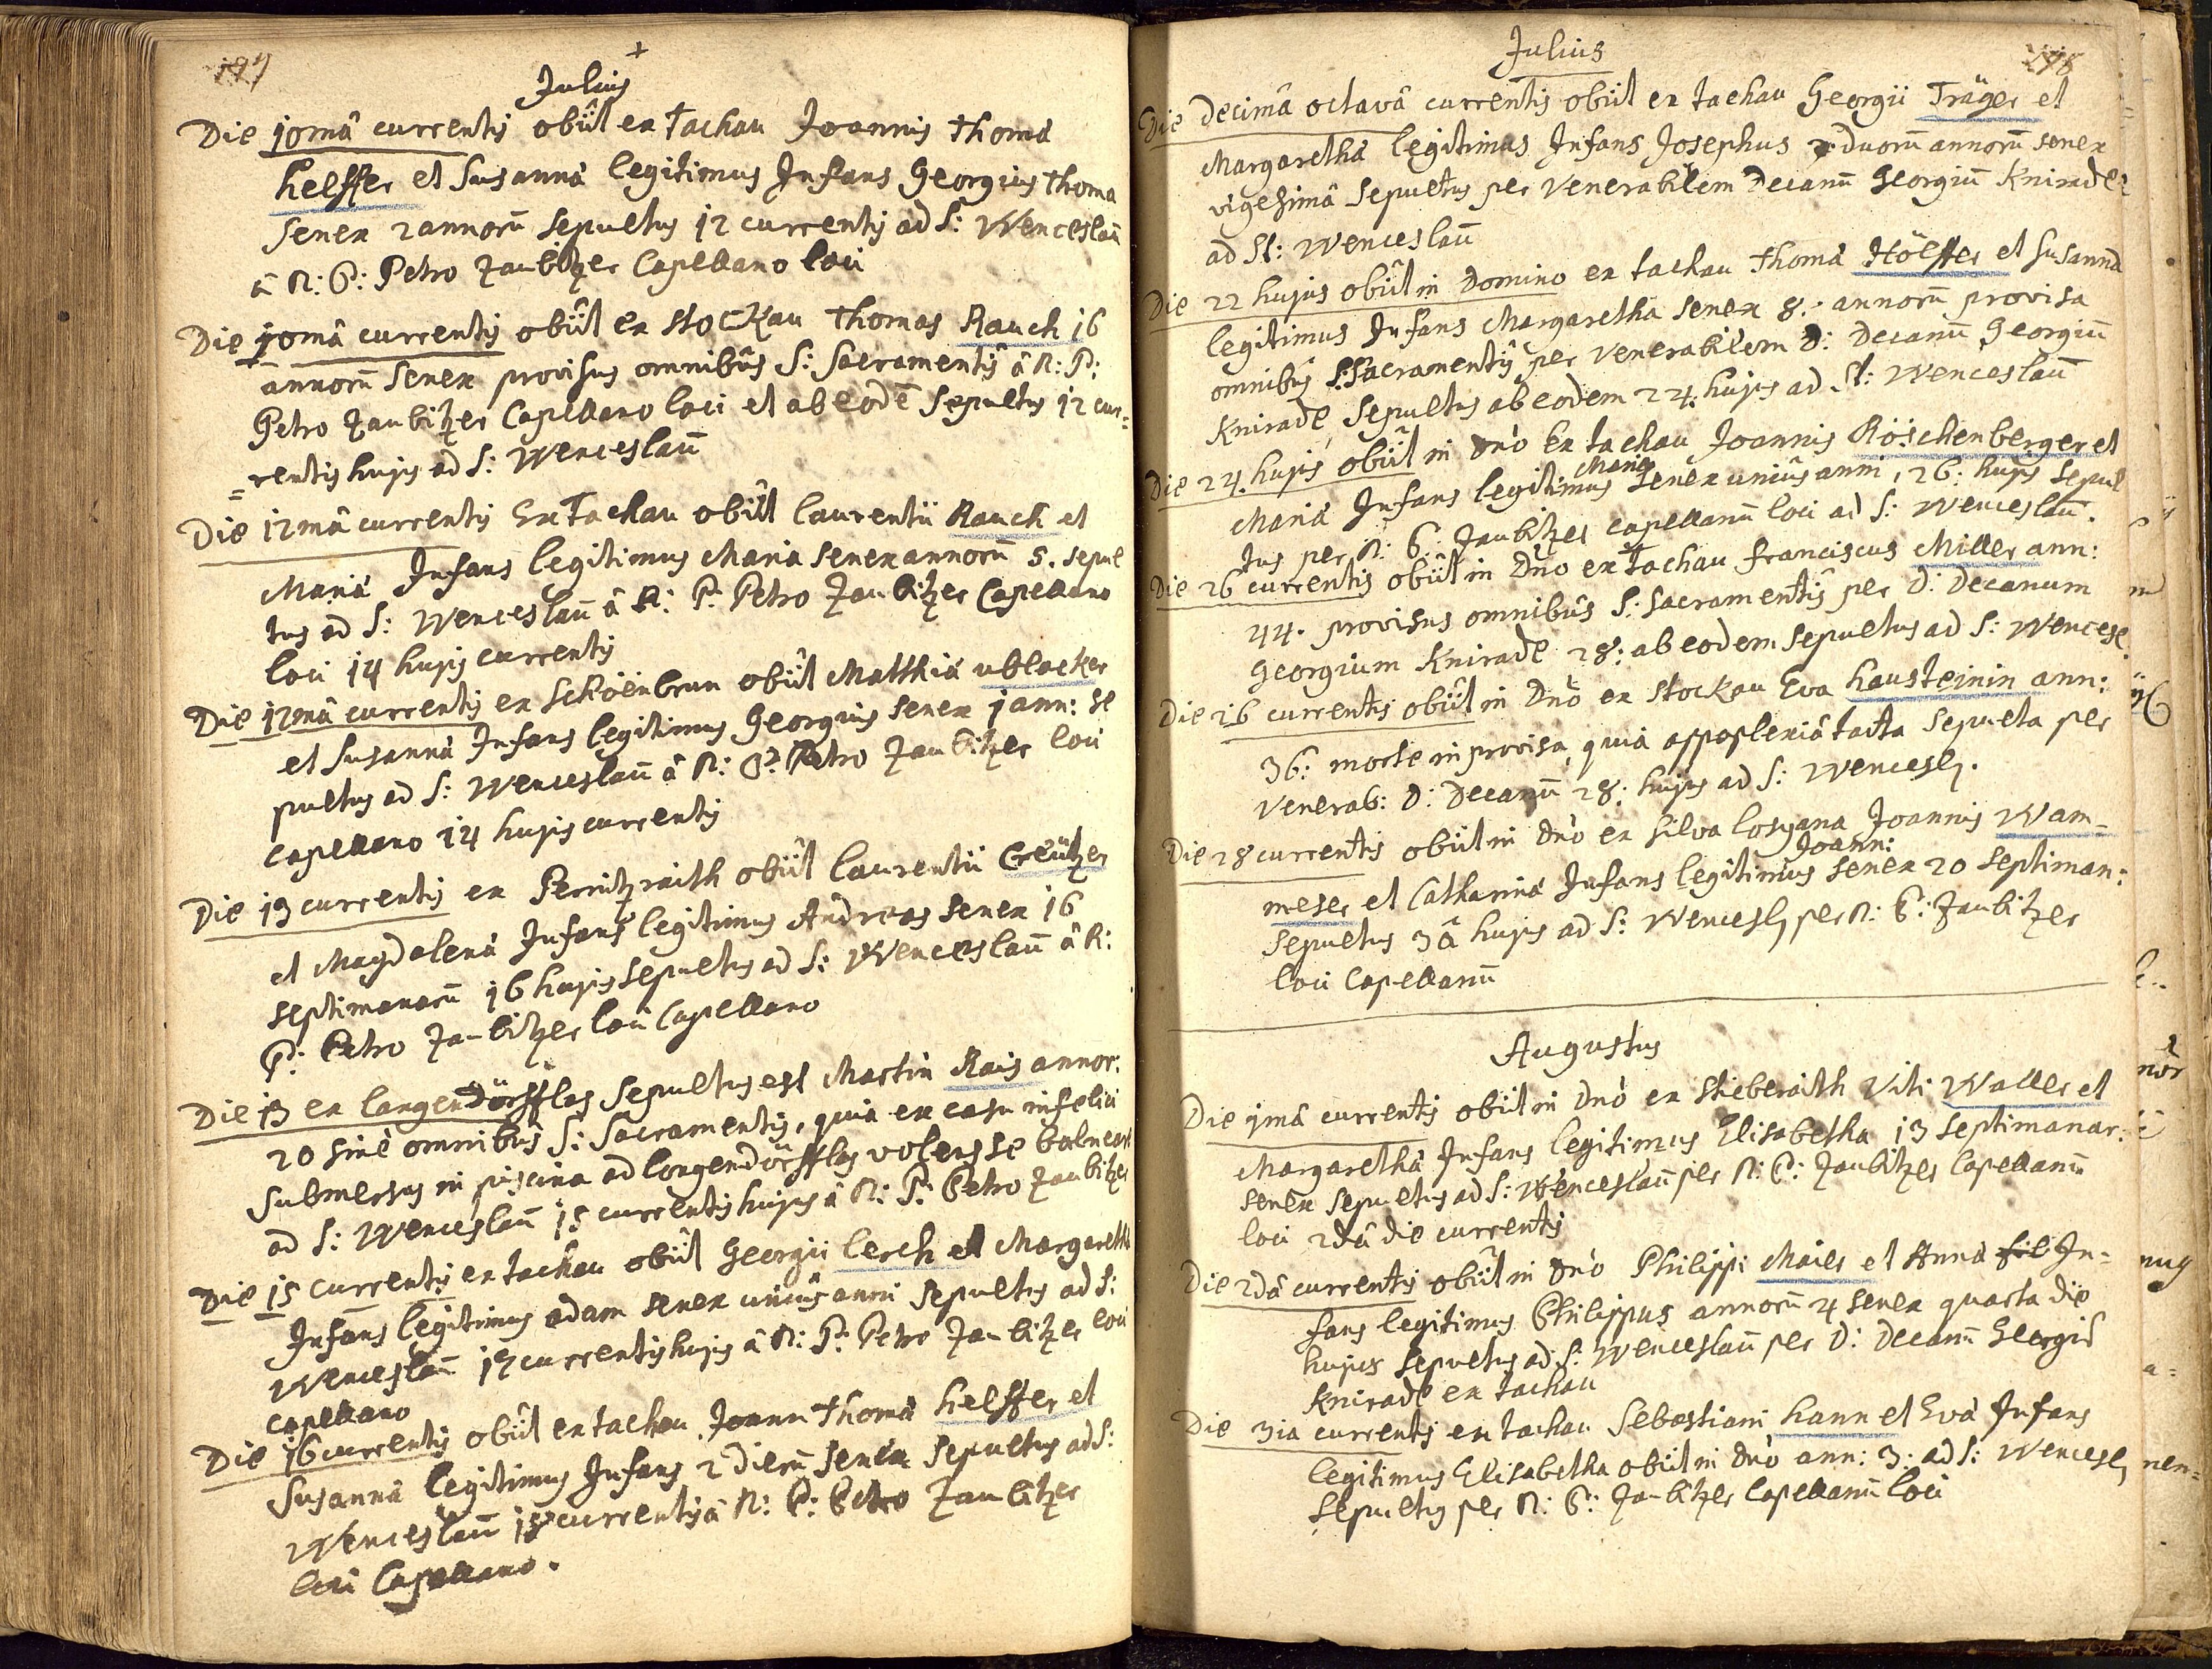 197
Julius
Die 10mâ currentis obiît ex Tachau Joannis Thomà
helffer et Susannà legitimus Infans Georgius Thoma
senex 2 annorū sepultus 12 currentis ad S: Wenceslaū
â R: P: Petro Zaubitzer Capellano loci
Die 10mâ currentis obiît ex Stockau Thomas Rauch 16
annorū senex provisus omnibûs S: Sacramentis â R: P:
Petro Zaubitzer Capellano loci et ab eodē sepultus 12 cur=
=rentis hujus ad S: Wenceslaū
Die 12mâ currentis Ex Tachau obiît Laurentii Rauch et
Marià Infans legitimus Maria senex annorū 5. sepul
tus ad S: Wenceslaū â R: P: Petro Zaubitzer Capellano
loci 14 hujus currentis
Die 12mâ currentis ex Schöinbrun obiît Matthià ublacker
et Susannà Infans legitimus Georgius senex 1 ann: se
pultus ad S: Wenceslaū â R: P: Petro Zaubitzer loci
capellano 14 hujus currentis
Die 13 currentis ex Pernitzraith obiît Laurentii Creützer
et Magdalenà Infans legitimus Andreas senex 16
septimanarū 16 hujus sepultus ad S: Wenceslaū â R:
P: Petro Zaubitzer loci Capellano
Die 13 ex langendörfflas sepultus est Martin Rais annor:
20 sinè omnibûs S: Sacramentis, quia ex casu infelici
submersus in piscina ad longendörfflas volens se balneare
ad S: Wenceslaū 15 currentis hujus â R: P: Petro Zaubitzer
Die 15 currentis ex tachau obiît Georgii lerch et Margarethà
Infans legitimus adam senex uniûs anni sepultus ad S:
Wenceslaū 17 currentis hujus â R: P: Petro Zaubitzer loci
capellano
Die 16 currentis obiît ex tachau Joann Thomà helffer et
Susannà legitimus Infans 2 dierū senex sepultus ad S:
Wenceslaū 18 currentis â R: P: Petro Zaubitzer
loci Capellano.
198
Julius
Die decimâ octavâ currentis obiît ex tachau Georgii Träger et
Margarethà legitimus Infans Josephus duorū annorū senex
vigesimâ sepultus per Venerabilem Decanū Georgiū Kniradl
ad St: Wenceslaū
Die 22 hujus obiît in Domino ex tachau Thomà Hölffer et Susannà
legitimus Infans Margaretha senex 8: annorū provisa
omnibûs S: Sacramentis per Venerabilem D: Decanū Georgiū
Kniradl, sepultus ab eodem 24. hujus ad St: Wenceslaū
Die 24. hujus obiît in Dnò Ex tachau Joannis Röschenberger et
Maria
Marià Infans legitimus senex uniûs anni, 26: hujus sepul
tus per R: P: Zaubitzer capellanū loci ad S: Wenceslaū.
Die 26 currentis obiît in Dnò ex Tachau Franciscus Miller ann:
44. provisus omnibûs S: Sacramentis per D: Decanum
Georgium Kniradl 28: ab eodem sepultus ad S: Wencesl
Die 26 currentis obiît in Dnò ex Stockau Eva hausteinin ann:
36: morte improvisa, quia appoplexiâ tacta sepulta per
Venerab: D: Decanū 28: hujus ad S: Wencesl.
Die 28 currentis obiît in Dnò ex silva losyana Joannis Wam-
Joann:
meser et Catharinà Infans legitimus senex 20 septiman:
sepultus 3â hujus ad S: Wencesl per R: P: Zaubitzer
loci Capellanū
Augustus
Die 1mâ currentis obiît in Dnò ex Stieberaith Viti Waller et
Margarethà Infans legitimus Elisabetha 13 septimanar:
senex sepultus ad S: Wenceslaū per R: P: Zaubitzer Capellanū
loci 2dâ die currentis
Die 2dâ currentis obiît in Dnò Philippi Maier et Annà fil In=
fans legitimus Philippus annorū 4 senex quarta die
hujus sepultus ad S: Wenceslaū per D: Decanū Georgiū
Kniradl ex tachau
Die 3ia currentis ex tachau Sebastiani hann et Evà Infans
legitimus Elisabetha obiît in Dnò ann: 3: ad S: Wencesl
sepultus per R: P: Zaubitzer Capellanū loci